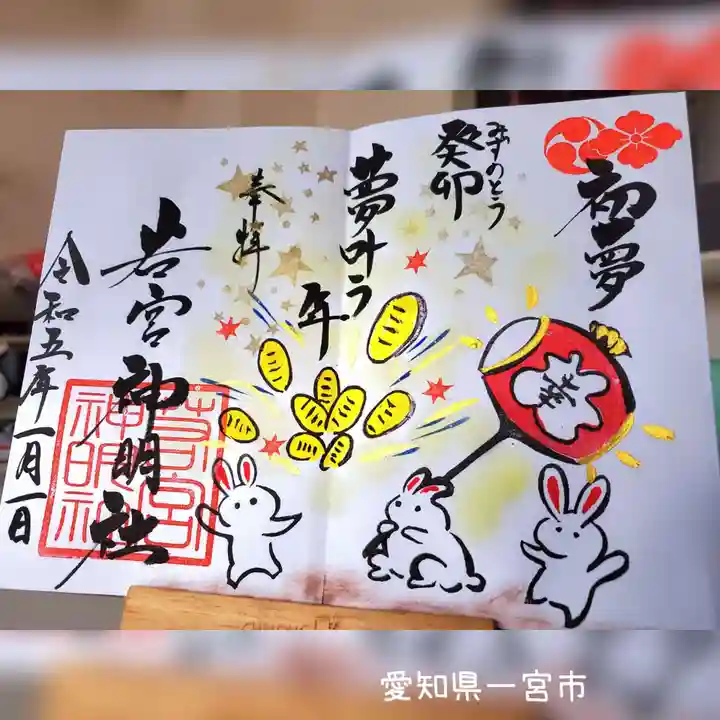 初夢
みずのとう
癸卯
夢叶う
年
奉拝
若宮神明社
令和五年一月一日
若宮
神明社
愛知県一宮市